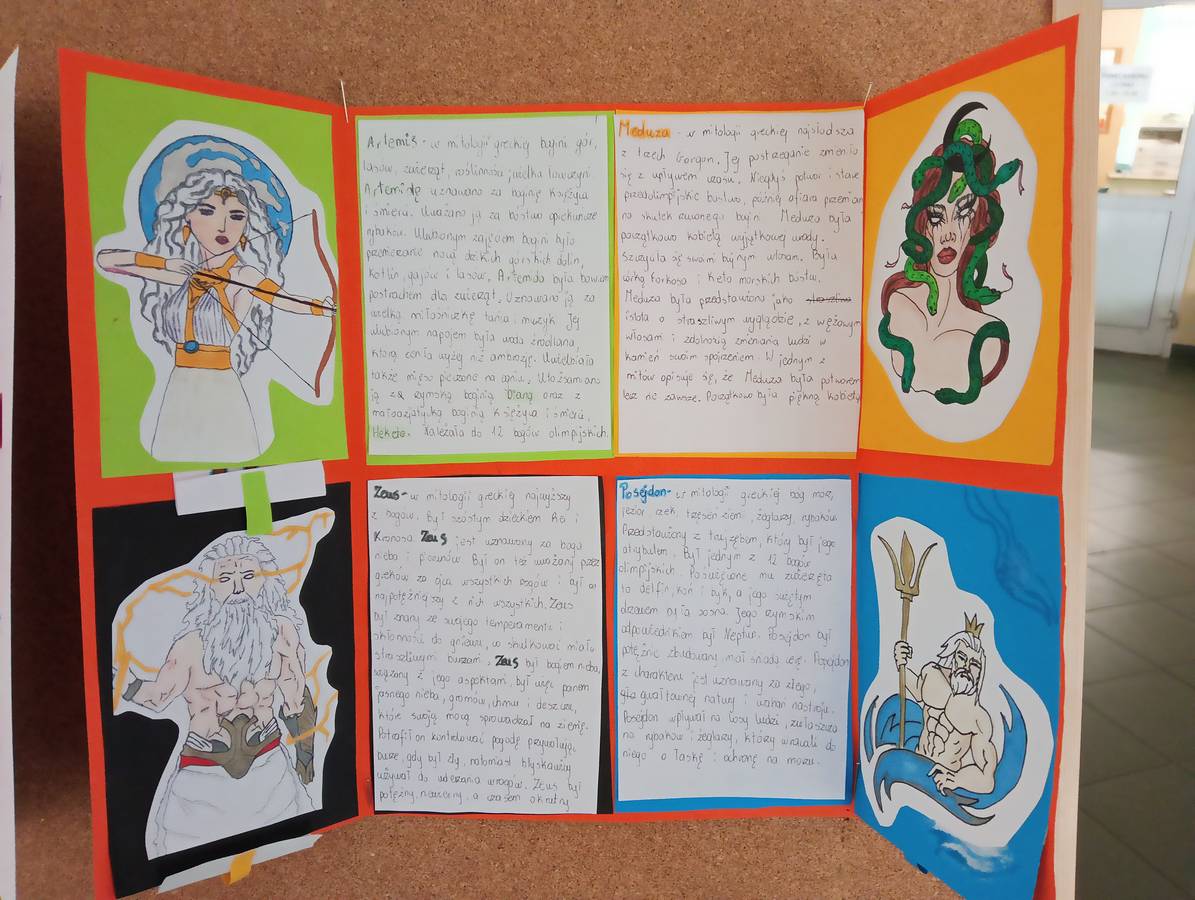 Artemis - w mitologii greckiej bogini gór,
lasów, zwierząt, roślinności, wielka łowczyni.
Artemidę uznawano za boginię księżyca
i śmierci. Uważano ją za bóstwo opiekuńcze
rybaków. Ulubionym zajęciem bogini było
przemierzanie nową dzikich górskich dolin,
kotlin, gajów i lasów. Artemida była bowiem
postrachem dla zwierząt. Uznawano ją za
wielką miłośniczkę tańca, muzyki. Jej
ulubionym napojem była woda źródlana,
którą ceniła wyżej niż ambrozję. Uwielbiała
także mięso pieczone na ogniu. Utożsamiano
ją za rzymską boginią Dianą oraz z
małoazjatycką boginią księżyca i śmierci,
Hekate. Należała do 12 bogów olimpijskich.
Meduza - w mitologi greckiej najmłodsza
z trzech Gorgon. Jej postrzeganie zmienia
się z upływem czasu. Niegdyś potwór i stare
przedolimpijskie bóstwo, później ofiara przemian
na skutek bogiń. Meduza była
początkowo kobietą wyjątkowej urody.
Szczyciła się swoimi bujnym włosam. Była
córką Forkosa i Keto morskich bóstw.
Meduza była przedstawiona jako
istota o straszliwym wyglądzie, z wężowymi
włosami i zdolnością zmieniania ludzi w
kamień swoim spojrzeniem. W jednym z
mitów opisuje się, że Meduza była potworem
lecz nie zawsze. Początkowo była piękną kobietą
Zeus - w mitologii greckiej najwyższy
z bogów. Był szóstym dzieckiem Rei i
Kronosa. Zeus jest uznawany za boga
nieba i piorunów. Był on też uważany przez
greków za ojca wszystkich bogów i był on
najpotężniejszy z nich wszystkich. Zeus
był znany ze swojego temperamentu i
skłonności do gniewu, co skutkować miało
straszliwymi burzami. Zeus był bogiem nieba,
związany z jego aspektami, był więc panem
jasnego nieba, gromów, chmur i deszczu,
które swoją mocą sprowadzał na ziemię.
Potrafił on kontrolować pogodę przywołując
burze, gdy był zły, natomiast błyskawicy
używał do uderzania wrogów. Zeus był
potężny, a czasem okrutny.
Posejdon - w mitologi greckiej bóg mórz,
jezior rzek, trzęsień ziemi, żeglarzy, rybaków.
Przedstawiony z trójzębem, który był jego
atrybutem. Był jednym z 12 bogów
olimpijskich. Poświęcone mu zwierzęta
to delfin, koń i byk, a jego świętym
drzewem była sosna. Jego rzymskim
odpowiednikiem był Neptun. Posejdon był
potężnie zbudowany, miał śniadą cerę. Posejdon
z charakteru jest uznawany za złego,
gwałtownej natury i wahań nastroju.
Posejdon wpływał na losy ludzi, zwłaszcza
na rybaków i żeglarzy, którzy wracali do
niego o łaskę i ochronę na morzu.